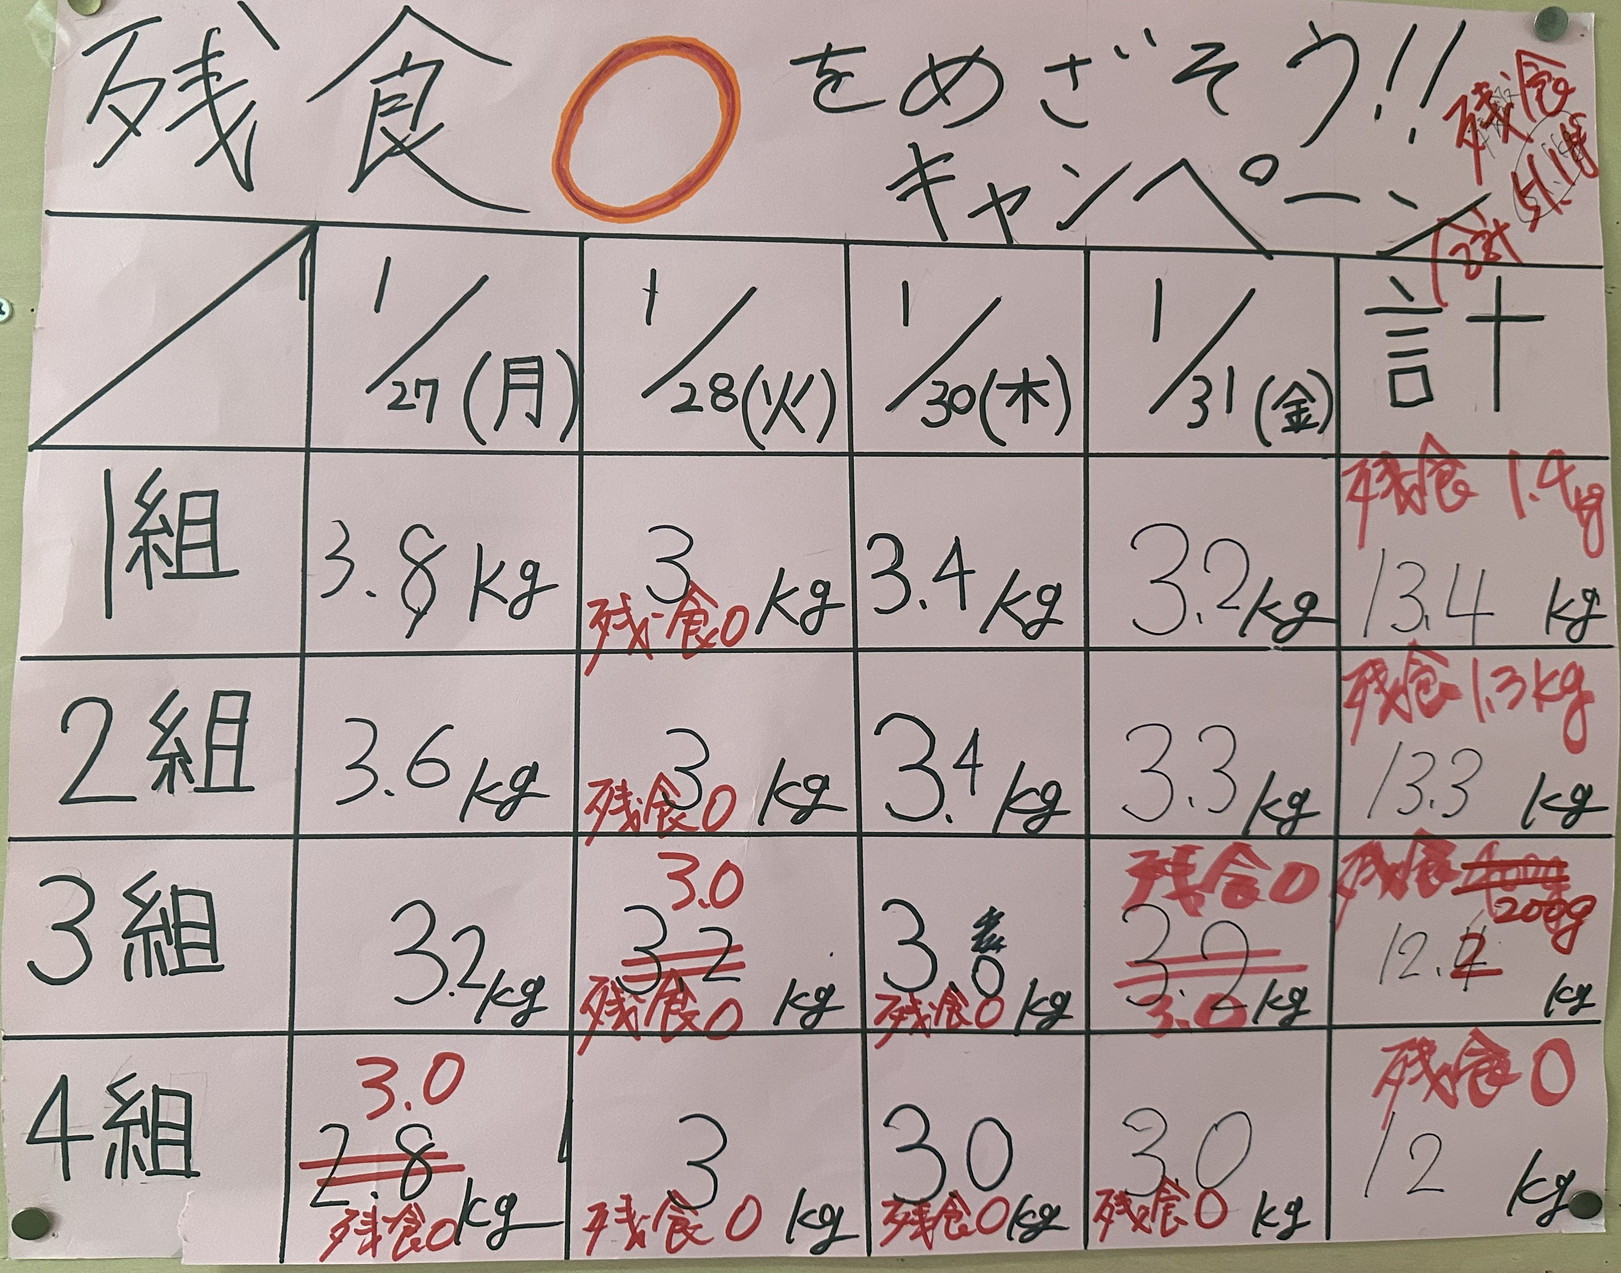 残食〇をめざそう!!
キャンペーン
残食
合計
1/27(月) 1/28(火) 1/30(木) 1/31(金) 計
1組 3.8kg 3kg 残食0 3.4kg 3.2kg 残食1.4kg 13.4kg
2組 3.6kg 3kg 残食0 3.4kg 3.3kg 残食1.3kg 13.3kg
3組 3.2kg 3.0 3.2kg 残食0 3.0kg 残食0 残食0 3.2kg 3.0 残食 200g 12.2kg
4組 3.0 2.8kg 残食0 3kg 残食0 3.0kg 残食0 3.0kg 残食0 残食0 12kg